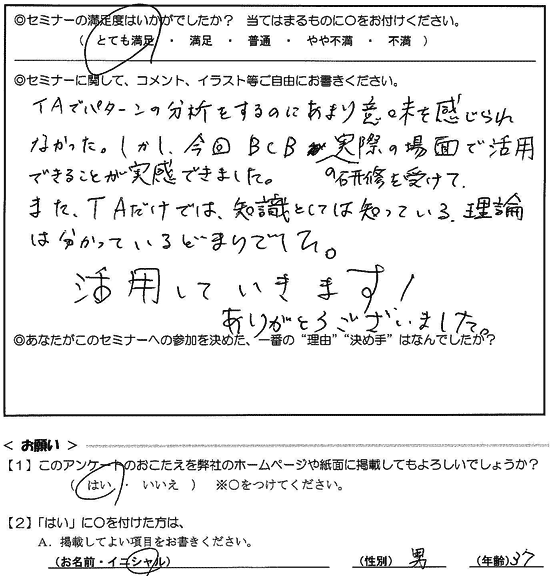 ◎セミナーの満足度はいかがでしたか？ 当てはまるものに〇をお付けください。
（ とても満足 ・ 満足 ・ 普通 ・ やや不満 ・ 不満 ）
◎セミナーに関して、コメント、イラスト等ご自由にお書きください。
TAでパターンの分析をするのにあまり意味を感じられ
なかった。しかし、今回BCB
の研修を受けて、
実際の場面で活用
できることが実感できました。
また、TAだけでは、知識としては知っている、理論
は分かっているどまりでした。
活用していきます！
ありがとうございました。
◎あなたがこのセミナーへの参加を決めた、一番の“理由”“決め手”はなんでしたか？
＜ お願い ＞
【１】このアンケートのおこたえを弊社のホームページや紙面に掲載してもよろしいでしょうか？
（ はい ・ いいえ ） ※〇をつけてください。
【２】「はい」に〇を付けた方は、
A．掲載してよい項目をお書きください。
（お名前・イニシャル） （性別） 男 （年齢）37